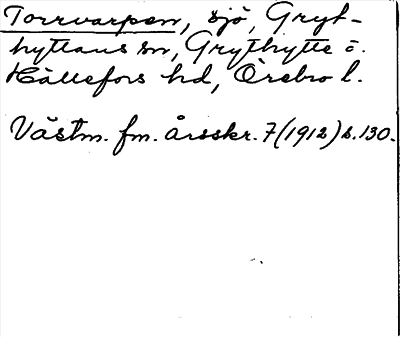 Torrvarpen, sjö, Gryt-
hyttans sn, Grythytte o.
Hällefors hd, Örebro l.
Västm. fm. årsskr. 7(1912) s. 130.